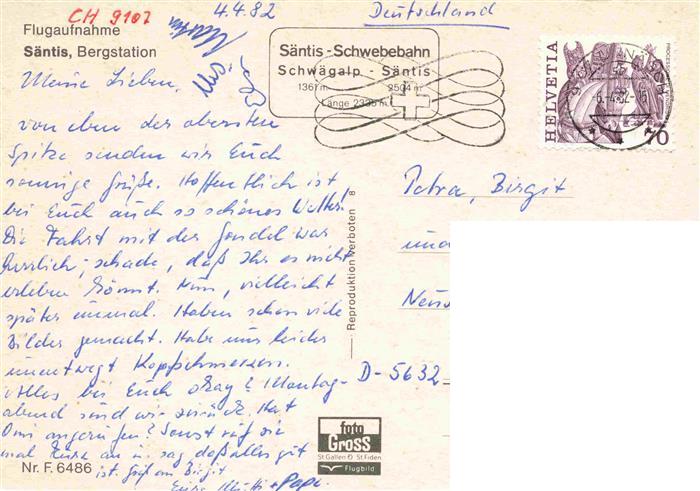 CH 9107
4.4.82
Deutschland
Flugaufnahme
Säntis, Bergstation
Säntis-Schwebebahn
Schwägalp - Säntis
1361 m 2504 m
Länge 2335 m
HELVETIA
70
Meine Lieben,
von eben der obersten
Spitze senden wir Euch
sonnige Grüße. Hoffentlich ist
bei Euch auch so schönes Wetter.
Die Fahrt mit der Gondel war
herrlich, schade, daß Ihr es nicht
erleben könnt. Nun, vielleicht
später einmal. Haben schon viele
Bilder gemacht. Habe nur leider
unentwegt Kopfschmerzen.
Alles bei Euch okay? Montag-
abend sind wir zurück. Hat
Omi angerufen? Sonst ruf sie
mal kurz an u. sag daß alles gut
ist. Gruß an Birgit
Eure Mutti + Papi
Petra, Birgit
und
Neus
D-5632
Reproduktion verboten 8
foto
Gross
St. Gallen St. Fiden
Flugbild
Nr. F. 6486